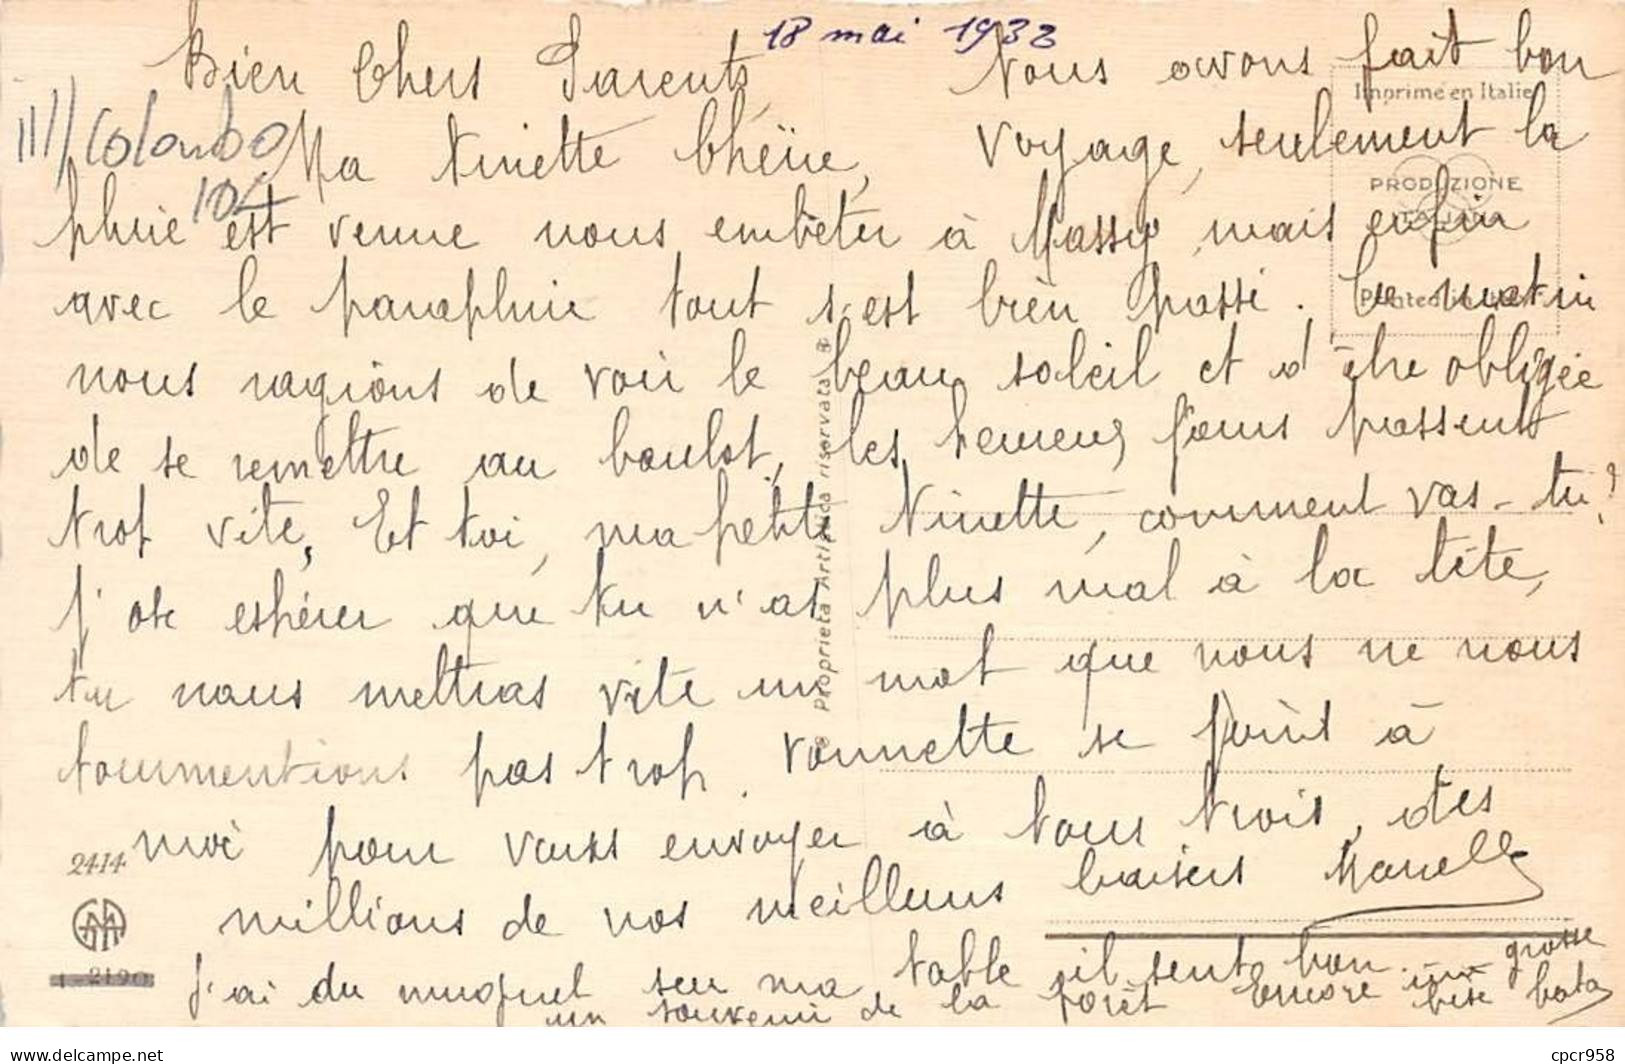 18 mai 1932
Bien Chers Parents,
Ma Ninette Chérie,
Nous avons fait bon
voyage, seulement la
pluie est venue nous embêter à Massy, mais enfin
avec le parapluie tout s'est bien passé. Ce matin
nous ragions de voir le beau soleil et d'être obligée
de se remettre au boulot, les bons jours passent
trop vite, Et toi, ma petite Ninette, comment vas-tu?
j'ose espérer que tu n'as plus mal à la tête,
tu nous mettras vite un mot que nous ne nous
tourmentions pas trop. Vonnette se joint à
moi pour vous envoyer à tous trois, des
millions de nos meilleurs baisers Marcelle
J'ai du muguet sur ma table il sent bon.
un souvenir de la forêt
Encore une grosse
bise
III/ Colombo
104
Imprimé en Italie
PRODUZIONE
ITALIANA
Printed in Italy
© Proprietà Artistica riservata ®
2414
1-2190
cpcr958